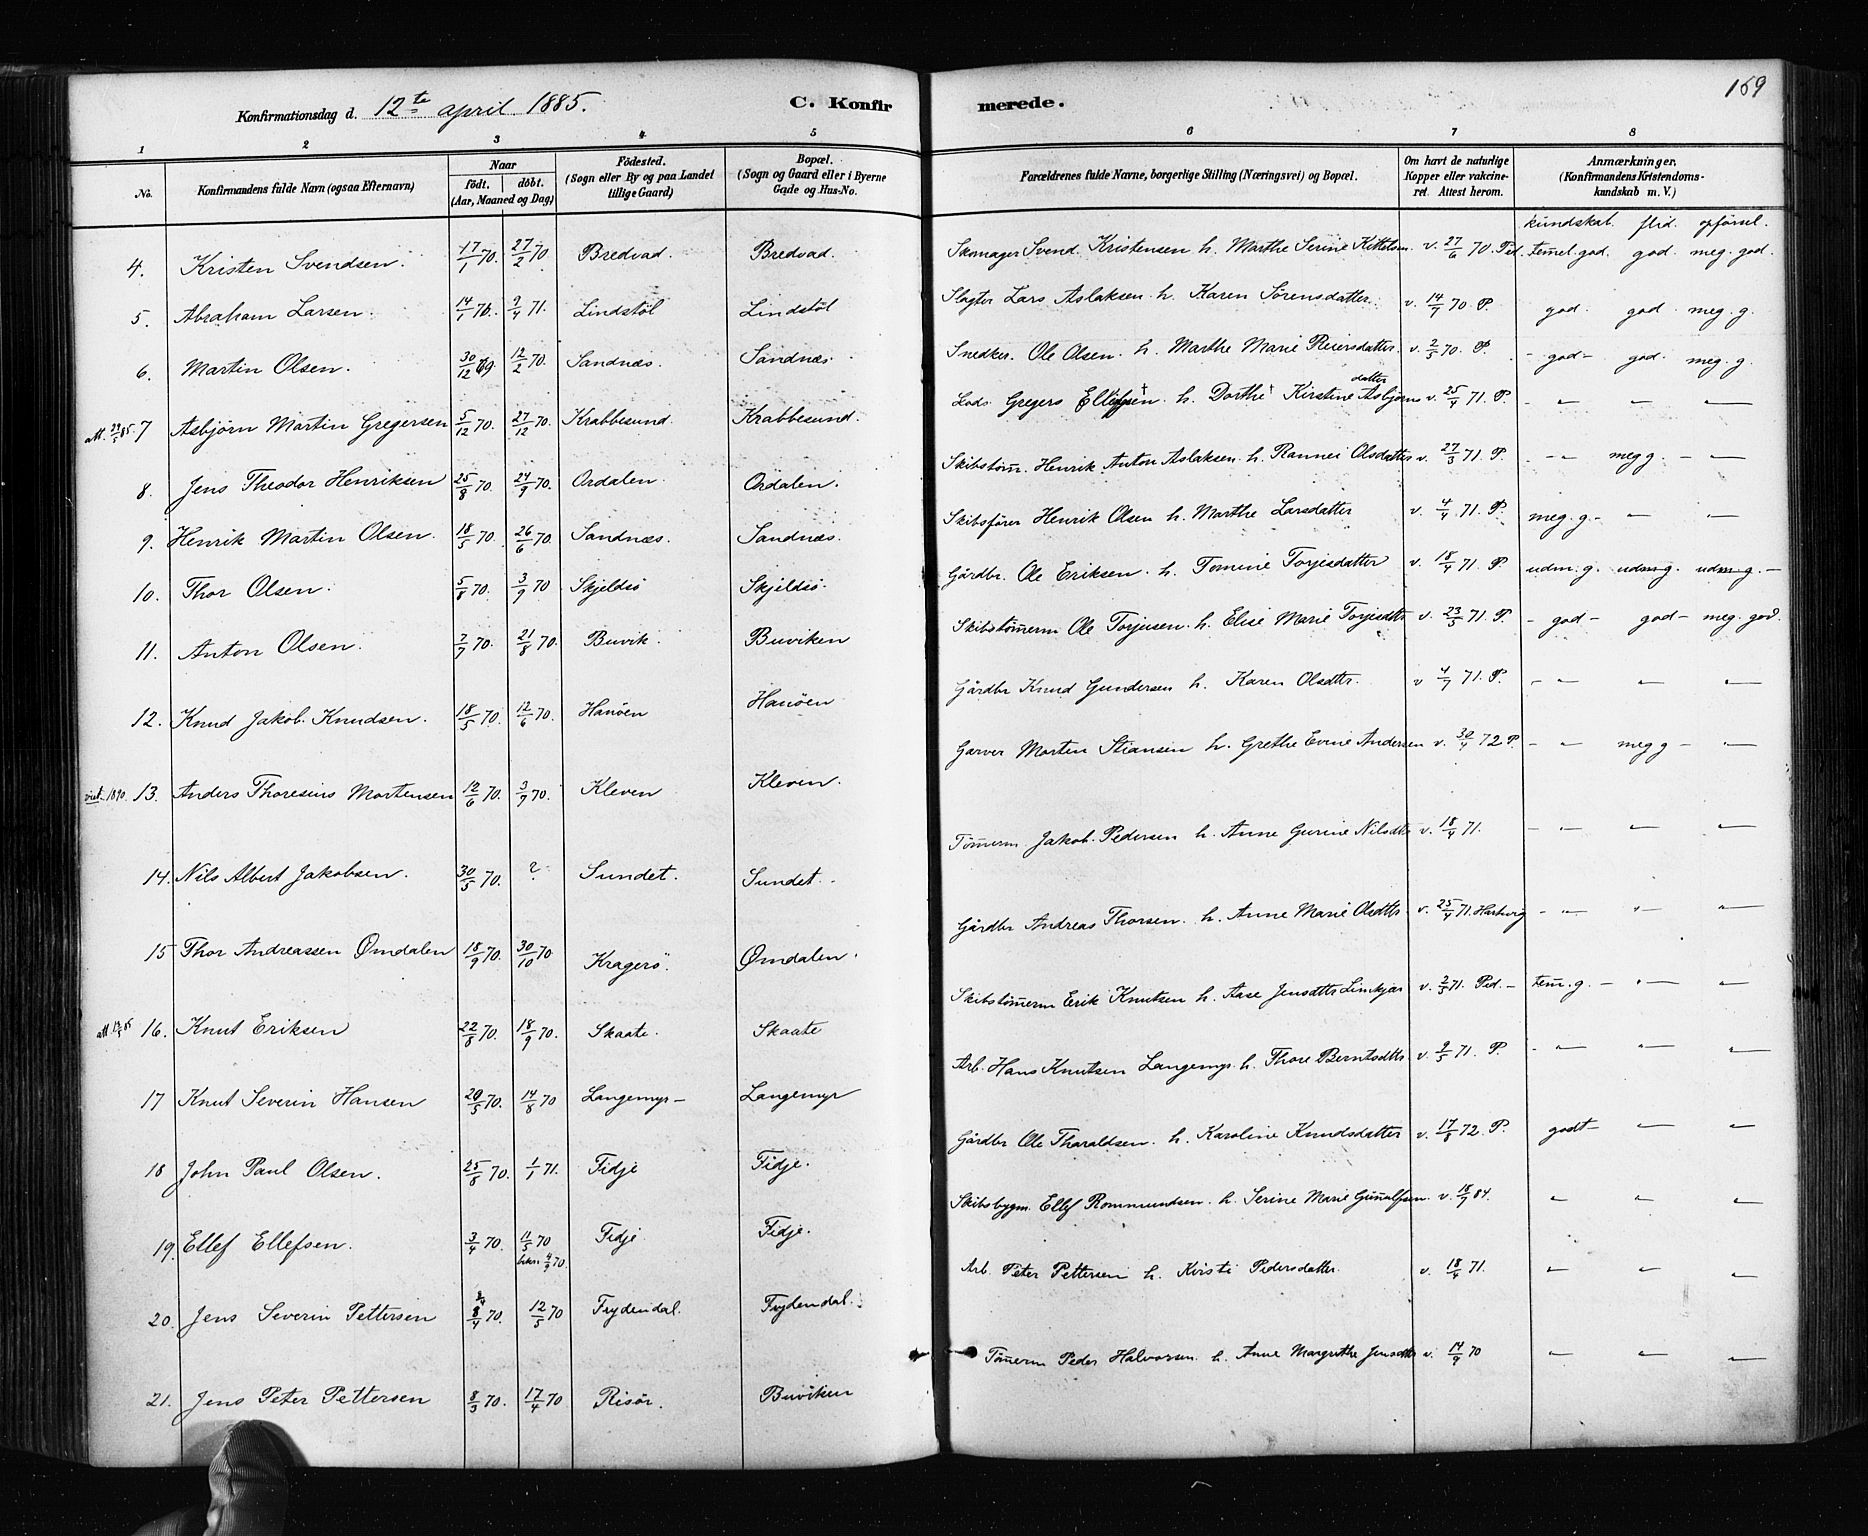 159
Konfirmationsdag d. 12te april 1885. C. Konfir merede.
1 2 3 4 5 6 7 8
No. Konfirmandens fulde Navn (ogsaa Efternavn) Naar født. døbt. (Aar, Maaned og Dag) Fødested. (Sogn eller By og paa Landet tillige Gaard) Bopæl. (Sogn og Gaard eller i Byerne Gade og Hus-No. Forældrenes fulde Navne, borgerlige Stilling (Næringsvei) og Bopæl. Om havt de naturlige Kopper eller vakcineret. Attest herom. Anmærkninger. (Konfirmandens Kristendomskundskab m. V.)
kundskab. flid. opførsel.
4. Kristen Svendsen. 17/1 70. 27/2 70 Bredvad. Bredvad. Skomager Svend Kristensen h. Marthe Serine Kittelsen v. 27/6 70. Ped. temel. god. god. meg. god.
5. Abraham Larsen. 14/1 70. 2/4 71. Lindstøl Lindstøl Slagter Lars Aslaksen h. Karen Sørensdatter. v. 14/7 70 P. god. god. meg. g.
6. Martin Olsen. 30/12 69 12/2 70. Sandnæs. Sandnæs. Snedker. Ole Olsen. h. Marthe Marie Reiersdatter. v. 2/5 70. P. - god - god. meg. g.
att. 22/5 85. 7 Asbjørn Martin Gregersen 5/12 70. 27/12 70. Krabbesund. Krabbesund. Lods Gregers Ellefsen † h. Dorthe † Kirstine Asbjørnsdatter v. 25/4 71. P. - " - " - "
8. Jens Theodor Henriksen 25/8 70. 24/9 70. Ordalen. Ordalen. Skibstøm. Henrik Anton Aslaksen h. Rannei Olsdatter v. 27/3 71. P. - " meg g. - "
9. Henrik Martin Olsen. 18/5 70. 26/6 70. Sandnæs. Sandnæs. Skibsfører Henrik Olsen h. Marthe Larsdatter v. 4/4 71. P. meg. g. - " "
10. Thor Olsen. 5/8 70. 3/9 70 Skjeldsø Skjeldsø. Gårdbr. Ole Eriksen. h. Tomine Torjesdatter v. 18/4 71. P. udm. g. udm. g. udm. g. -
11. Anton Olsen. 7/7 70. 21/8 70. Buvik. Buviken Skibstømerm Ole Torjusen. h. Elise Marie Torjesdtr v. 23/5 71. P. - god - god - meg. god.
12. Knud Jakob. Knudsen. 18/5 70. 12/6 70. Hanøen Hanøen Gårdbr Knud Gundersen h. Karen Olsdtr. v 4/7 71. P. - " " "
1890. 13. Anders Thoresius Mortensen 12/6 70. 3/9 70. Kleven Kleven. Garver Morten Stiansen h. Grethe Evine Andersen v. 30/4 72 P. - " meg g - "
14. Nils Albert Jakobsen. 30/5 70. ? Sundet. Sundet. Tømerm. Jakob. Pedersen h. Anne Gurine Nilsdtr v. 18/4 71. - " " "
15 Thor Andreassen Omdalen 18/9 70. 30/10 70 Kragerø. Omdalen. Gårdbr Andreas Thorsen. h. Anne Marie Olsdtr v. 25/4 71. Hartvig - " " "
att. 16. Knut Eriksen 22/8 70. 18/9 70. Skaate. Skaate Skibstømerm Erik Knutsen h. Aase Jensdtr Linkjær v. 2/5 71. Ped. - tem. g. - " "
17 Knut Severin Hansen 20/5 70. 14/8 70 Langemyr - Langemyr Arb. Hans Knutsen Langemyr. h. Thore Berntsdtr. v. 2/5 71. P. - " " "
18 John Paul Olsen. 25/8 70. 1/1 71. Fidje Fidje. Gårdbr Ole Tharaldsen. h. Karoline Knudsdatter v. 17/8 72. P. godt - " "
19. Ellef Ellefsen. 3/4 70. 11/5 70 bekr. 4/9 70. Fidje Fidje. Skibsbygm. Ellef Rommundsen. h. Serine Marie Gunulfsen v. 18/7 84. " " "
20. Jens Severin Pettersen 8/4 70. 12/5 70 Frydendal. Frydendal. Arb. Peter Pettersen h. Kirsti Pedersdatter v. 18/4 71. " " "
21. Jens Peter Pettersen 8/3 70. 17/4 70 Risør. Buviken Tømerm Peder Halvorsen h. Anne Margrethe Jensdtr v. 14/9 70 " " "